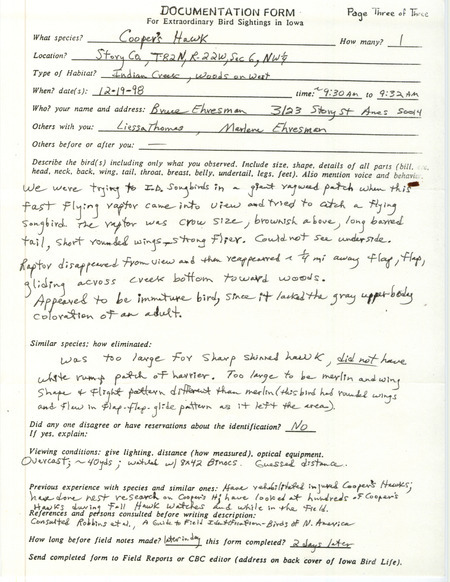 DOCUMENTATION FORM
Page Three of Three
For Extraordinary Bird Sightings in Iowa
What species? Cooper's Hawk How many? 1
Location? Story Co, T-82N, R-22W, Sec 6, NW¼
Type of Habitat? Indian Creek, woods on west
When? date(s): 12-19-98 time: ~9:30 AM to 9:32 AM
Who? your name and address: Bruce Ehresman 3123 Story St Ames 50014
Others with you: Liessa Thomas, Marlene Ehresman
Others before or after you: —
Describe the bird(s) including only what you observed. Include size, shape, details of all parts (bill, eye,
head, neck, back, wing, tail, throat, breast, belly, undertail, legs, feet). Also mention voice and behavior.
We were trying to I.D. songbirds in a giant ragweed patch when this
fast flying raptor came into view and tried to catch a flying
songbird. The raptor was crow size, brownish above, long barred
tail, short rounded wings - strong flier. Could not see underside.
Raptor disappeared from view and then reappeared ~ ¼ mi away flap, flap,
gliding across creek bottom toward woods.
Appeared to be immature bird, since it lacked the gray upper body
coloration of an adult.
Similar species; how eliminated:
was too large for sharp shinned hawk, did not have
white rump patch of harrier. Too large to be merlin and wing
shape & flight pattern different than merlin (this bird had rounded wings
and flew in flap-flap-glide pattern as it left the area).
Did any one disagree or have reservations about the identification? No
If yes, explain:
Viewing conditions: give lighting, distance (how measured), optical equipment.
Overcast; ~40yds; watched w/ 9x42 Binocs. Guessed distance.
Previous experience with species and similar ones: Have rehabilitated injured Cooper's Hawks;
have done nest research on Cooper's H; have looked at hundreds of Cooper's
Hawks during Fall Hawk Watches and while in the field.
References and persons consulted before writing description:
Consulted Robbins et al., A Guide to Field Identification-Birds of N. America
How long before field notes made? later in day this form completed? 2 days later
Send completed form to Field Reports or CBC editor (address on back cover of Iowa Bird Life).